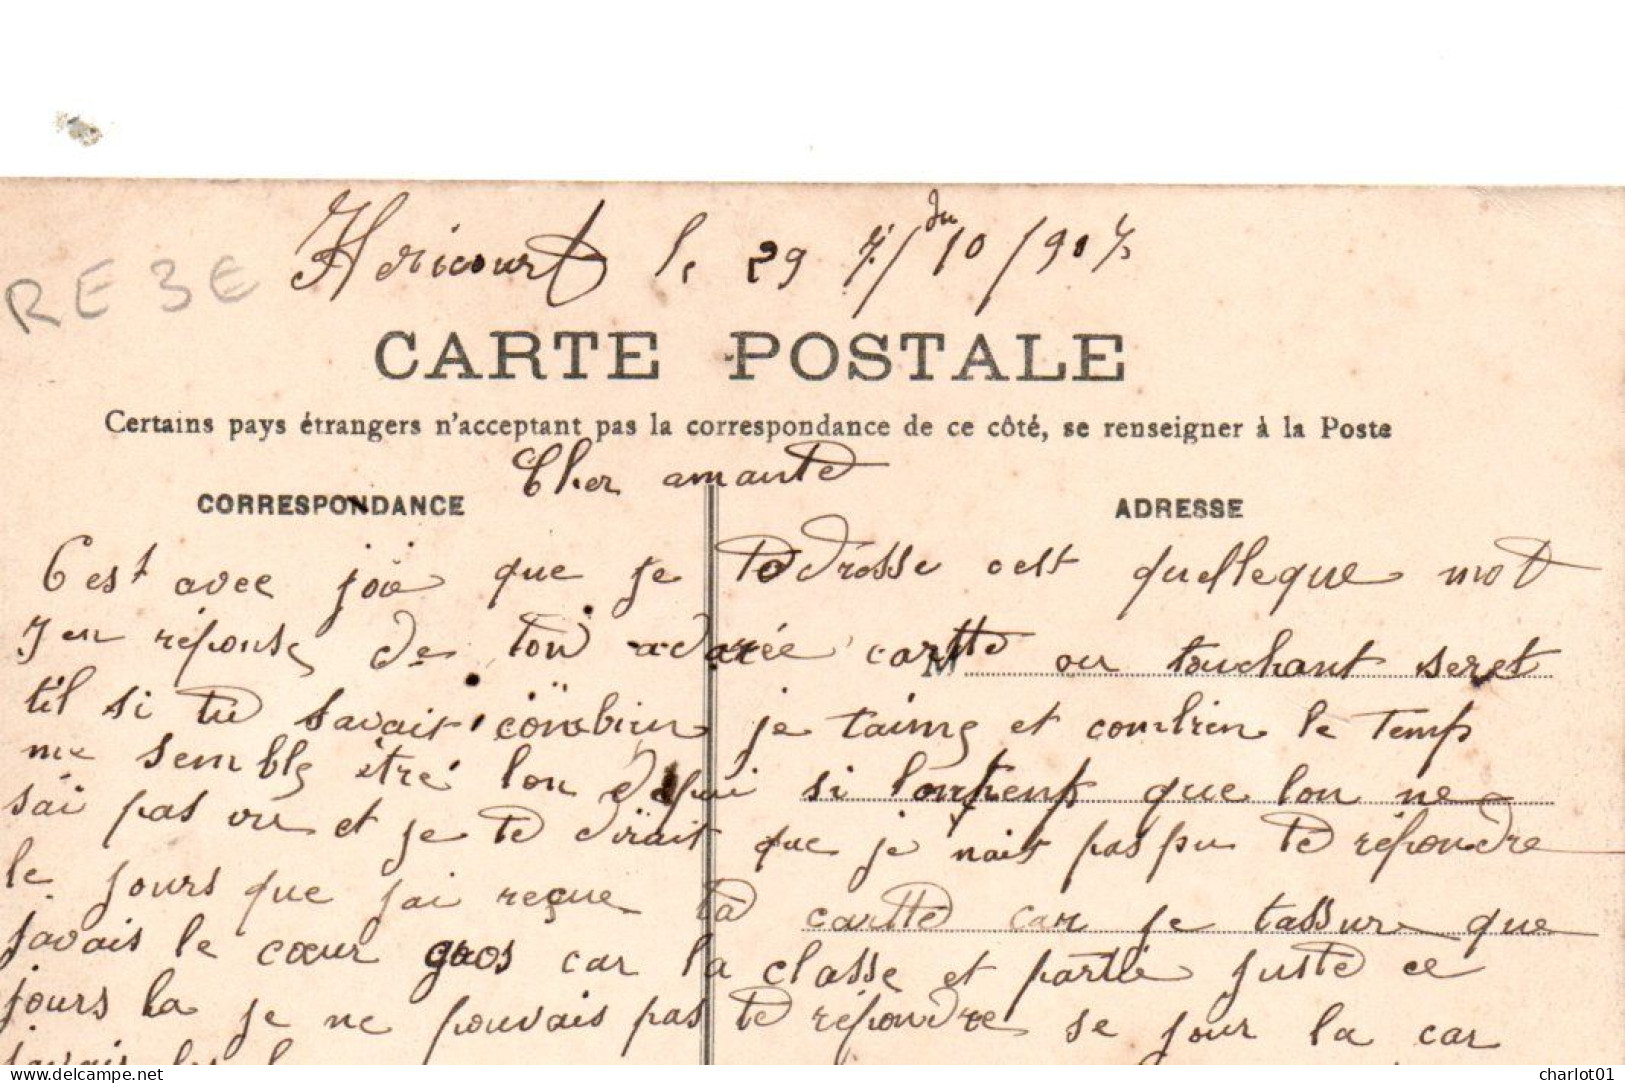 Héricourt le 29 7/ du 10/1907
RE 3E
CARTE POSTALE
Certains pays étrangers n'acceptant pas la correspondance de ce côté, se renseigner à la Poste
Cher amante
CORRESPONDANCE
ADRESSE
C'est avec joie que je t'odrésse cest quelleque mot
J en réponse de ton adorée cartte ou touchant seret
M
til si tu savais combien je taime et combien le temp
me semble étré lon depui si lontemp que lon ne
sai pas vu et je te dirait que je nait pas pu te répondre
le jours que jai reçue ta cartte car je tassure que
javais le cœur gros car la classe et partie juste ce
jours la je ne pouvais pas te répondre se jour la car
javais les
www.delcampe.net
charlot01